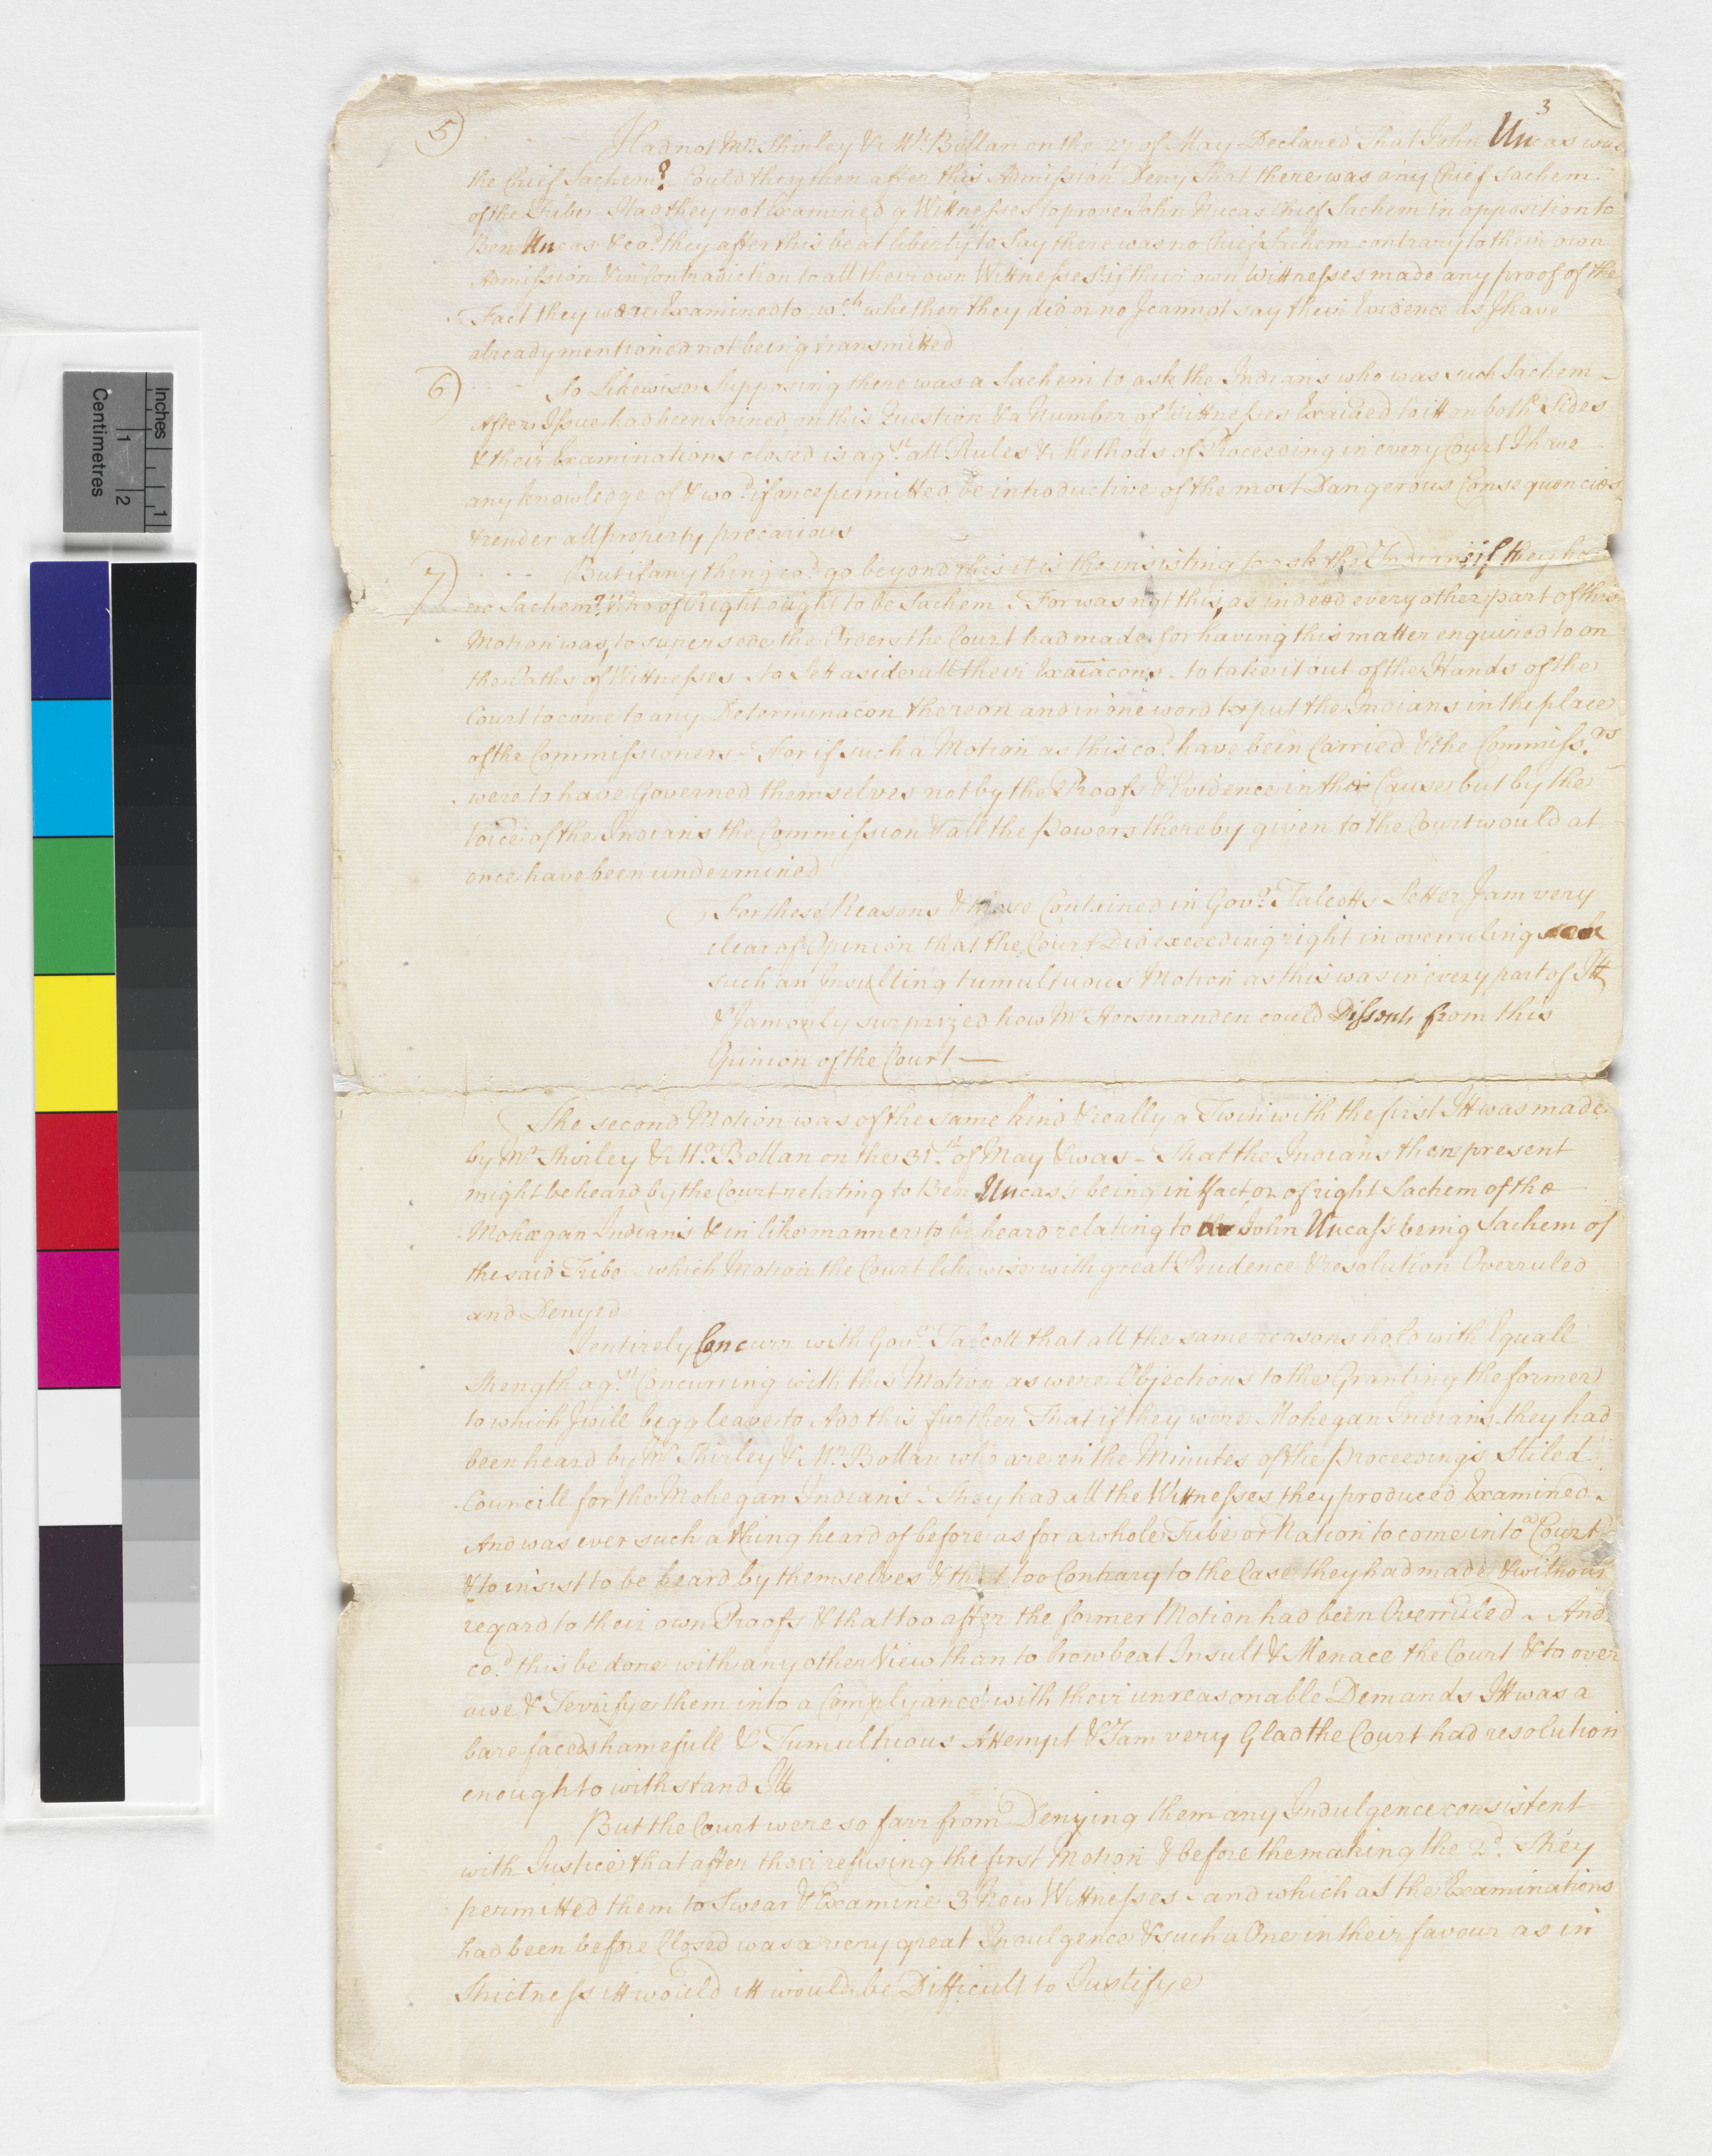 3
5) Had not Mr. Shirley & Mr. Bollan on the 27 of May Declared That John Uncas was
the Chief Sachem? Could they then after this Admission Deny that there was any Chief Sachem
of the Tribe Had they not Examined 9 Wittnesses to prove John Uncas Chief Sachem in opposition to
Ben Uncas & co.d they after this be at liberty to Say there was no Chief Sachem contrary to their own
Admission & in Contradiction to all their own Wittnesses if their own Wittnesses made any proof of the
Fact they were Examined to w.ch whether they did or no I cannot say their Evidence as I have
already mentioned not being transmitted
6) So Likewise Supposing there was a Sachem to ask the Indians who was such Sachem
After Issue had been Joined on this Question & a Number of Wittnesses Exaied to itt on both Sides
& their Examinations closed is ag.st all Rules & Methods of Proceeding in every Court I have
any knowledge of & wo.d if once permitted be introductive of the most Dangerous Consequencies
& render all property precarious
7) But if any thing co.d go beyond this it is the insisting to ask the Indians if they had
no Sachem? Who of right ought to be Sachem. For was not this, as indeed every other part of this
Motion was, to supersede the Orders the Court had made for having this matter enquired to on
the Oaths of Wittnesses to Sett aside all their Exaiacons to take it out of the Hands of the
Court to come to any Determinacon thereon and in one word to put the Indians in the place
of the Commissioners For if such a Motion as this co.d have been Carried & the Commiss.rs
were to have Governed themselves not by the Proofs & Evidence in the Cause but by the
Voice of the Indians the Commission & all the powers thereby given to the Court would at
once have been undermined
For these Reasons & those Contained in Gov.r Talcotts Letter I am very
clear of Opinion that the Court Did exceeding right in overruling
such an Insulting tumultuous Motion as this was in every part of Itt
& I am only surprized how Mr Horsmanden could Dissent from this
Opinion of the Court
The second Motion was of the same kind & really a Twin with the first Itt was made
by Mr Shirley & Mr. Bollan on the 31.st of May & was - That the Indians then present
might be heard by the Court relating to Ben Uncas's being in ffact or of right Sachem of the
Mohegan Indians & in like manner to be heard relating to John Uncass being Sachem of
the said Tribe which Motion the Court likewise with great Prudence & resolution Overruled
and Denyed
I entirely Concurr with Gov.r Talcott that all the same reasons hold with Equall
Strength ag.st Concurring with this Motion as were Objections to the Granting the former
to which I will begg leave to Add this further That if they were Mohegan Indians they had
been heard by Mr Shirley & Mr. Bollan who are in the Minutes of the proceedings Stiled
Councill for the Mohegan Indians. They had all the Wittnesses they produced Examined
And was ever such a thing heard of before as for a whole Tribe or Nation to come into Court
& to insist to be heard by themselves & that too Contrary to the Case they had made & without
regard to their own Proofs & that too after the former Motion had been Overruled. And
co.d this be done with any other View than to brow beat Insult & Menace the Court & to over
awe & Terrifye them into a Complyance with their unreasonable Demands Itt was a
bare faced shamefull & Tumultuous Attempt & I am very Glad the Court had resolution
enough to withstand Itt
But the Court were so farr from Denying them any Indulgence consistent
with Justice that after their refusing the first Motion & before the making the 2.d They
permitted them to Swear & Examine 3 New Wittnesses and which as the Examinations
had been before Closed was a very great Indulgence & such a One in their favour as in
Strictness itt would itt would be Difficult to Justifye
Inches
1
Centimetres
1 2